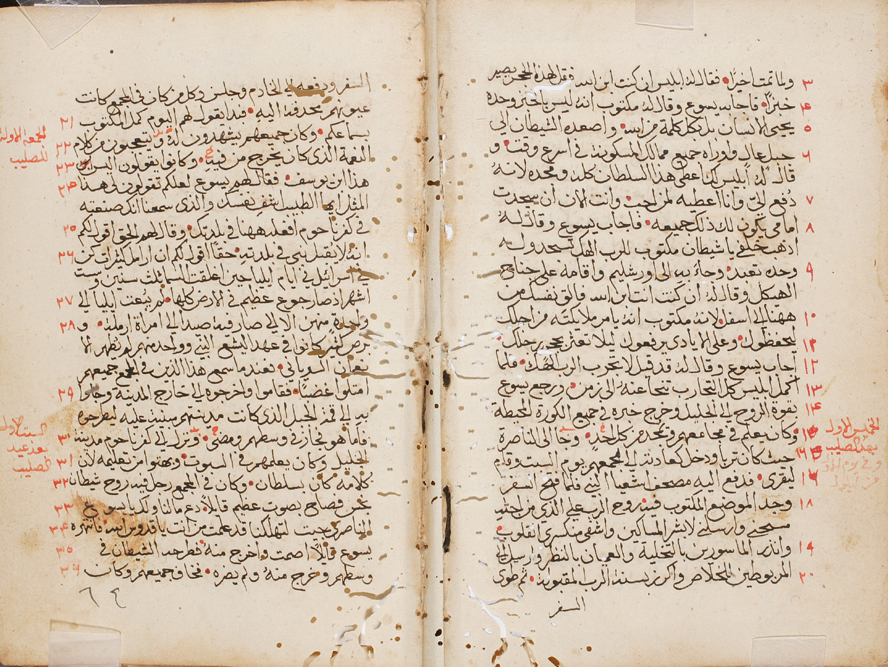 ٣ ولما تمت اخيرًا فقال له ابليس ان كنت ابن الله فقل لهذه الحجر يصير
٤ خبزًا فاجابه يسوع وقال له مكتوب انه ليس بالخبز وحده
٥ يحيى الانسان بل بكل كلمة من الله واصعده الشيطان الى
٦ جبل عالى واوراه جميع ممالك المسكونة في اسرع وقت و
قال له ابليس لك اعطي هذا السلطان كله ومجده لانه
٧ دفع لي وانا اعطيه لمن احب وانت الان ان سجدت
٨ امامي يكون لك ذلك جميعه فاجاب يسوع وقال له
اذهب خلفي يا شيطان مكتوب للرب الهك تسجد وله
٩ وحده تعبد وجاء به الى اورشليم واقامه على جناح
الهيكل وقال له ان كنت انت ابن الله فالق نفسك من
١٠ ههنا الى اسفل لانه مكتوب انه يامر ملايكته من اجلك
١١ ليحفظوك وعلى الايادي يرفعونك ليلا تعثر بحجر رجلك
١٢ اجاب يسوع وقال له قد قيل لا تجرب الرب الهك فلما
١٣ اكمل ابليس كل التجارب تنحا عنه الى زمن ورجع يسوع
١٤ بقوة الروح الى الجليل وخرج خبره في جميع الكورة المحيطة
١٥ وكان يعلم في مجامعهم ويمجد من كل احد وجا الى الناصرة
١٦ حيث كان تربا ودخل كعادته الى مجمعهم يوم السبت وقام
١٧ ليقري فدفع اليه مصحف اشعيا النبي فلما فتح السفر
١٨ وجد الموضع المكتوب فيه روح الرب علي الذي من اجله
مسحني وارسلني لابشر المساكين واشفي منكسري القلوب
١٩ وانذر الماسورين بالتخلية والعميان بالنظر وارسل الى
٢٠ المربوطين الخلاص واكرز بسنة الرب المقبولة ثم طوى
السفر
الخميس الاول
بعد الصليب
السفر ودفعه الى الخادم وجلس وكل من كان في المجمع كانت
٢١ عيونهم محدقة اليه فبدا يقول لهم اليوم كمل المكتوب
٢٢ بسماعكم وكان جميعهم يشهدون له ويتعجبون من كلام
٢٣ النعمة الذي كان يخرج من فيه وكانوا يقولون اليس
٢٤ هذا ابن يوسف فقال لهم يسوع لعلكم تقولون لي هذا
المثل ايها الطبيب اشف نفسك والذي سمعنا انك صنعته
٢٥ في كفرناحوم افعله ههنا في بلدتك وقال لهم الحق اقول لكم
٢٦ انه لا يقبل نبي في مدينته حقا اقول لكم ان ارامل كثيرات كن
في اسرائيل في ايام ايليا حين اغلقت السما ثلث سنين وست
٢٧ اشهر اذ صار جوع عظيم في الارض كلها لم يبعث ايليا الى
٢٨ واحدة منهن الا الى صارفية صيدا الى امراة ارملة و
برص كثير كانوا في عهد اليشع النبي وواحد منهم لم يطهر الا
نعمان السوياني فعند ما سمع هذا الذين في المجمع جميعهم
٢٩ امتلوا غضبًا فقاموا واخرجوه الى خارج المدينة وجاوا
به الى قمة الجبل الذي كانت مدينتهم مبنية عليه ليطرحوه
٣٠ فاما هو فجاز في وسطهم ومضى ونزل الى كفرناحوم مدينة
٣١ الجليل وكان يعلمهم في السبوت وبهتوا من تعليمه لان
٣٢ كلامه كان بسلطان وكان في المجمع رجل فيه روح شيطان
٣٣ نجس فصاح بصوت عظيم قائلًا دعه ما لنا ولك يايسوع
٣٤ الناصري جيت لتهلكنا قد علمت من انت ياقدوس الله فانتهره
٣٥ يسوع قائلًا اصمت واخرج منه فطرحه الشيطان في
٣٦ وسطهم وخرج منه ولم يضره فخاف جميعهم وكان
الجمعة الاولة
للصليب
السبت الاول
بعد عيد
الصليب